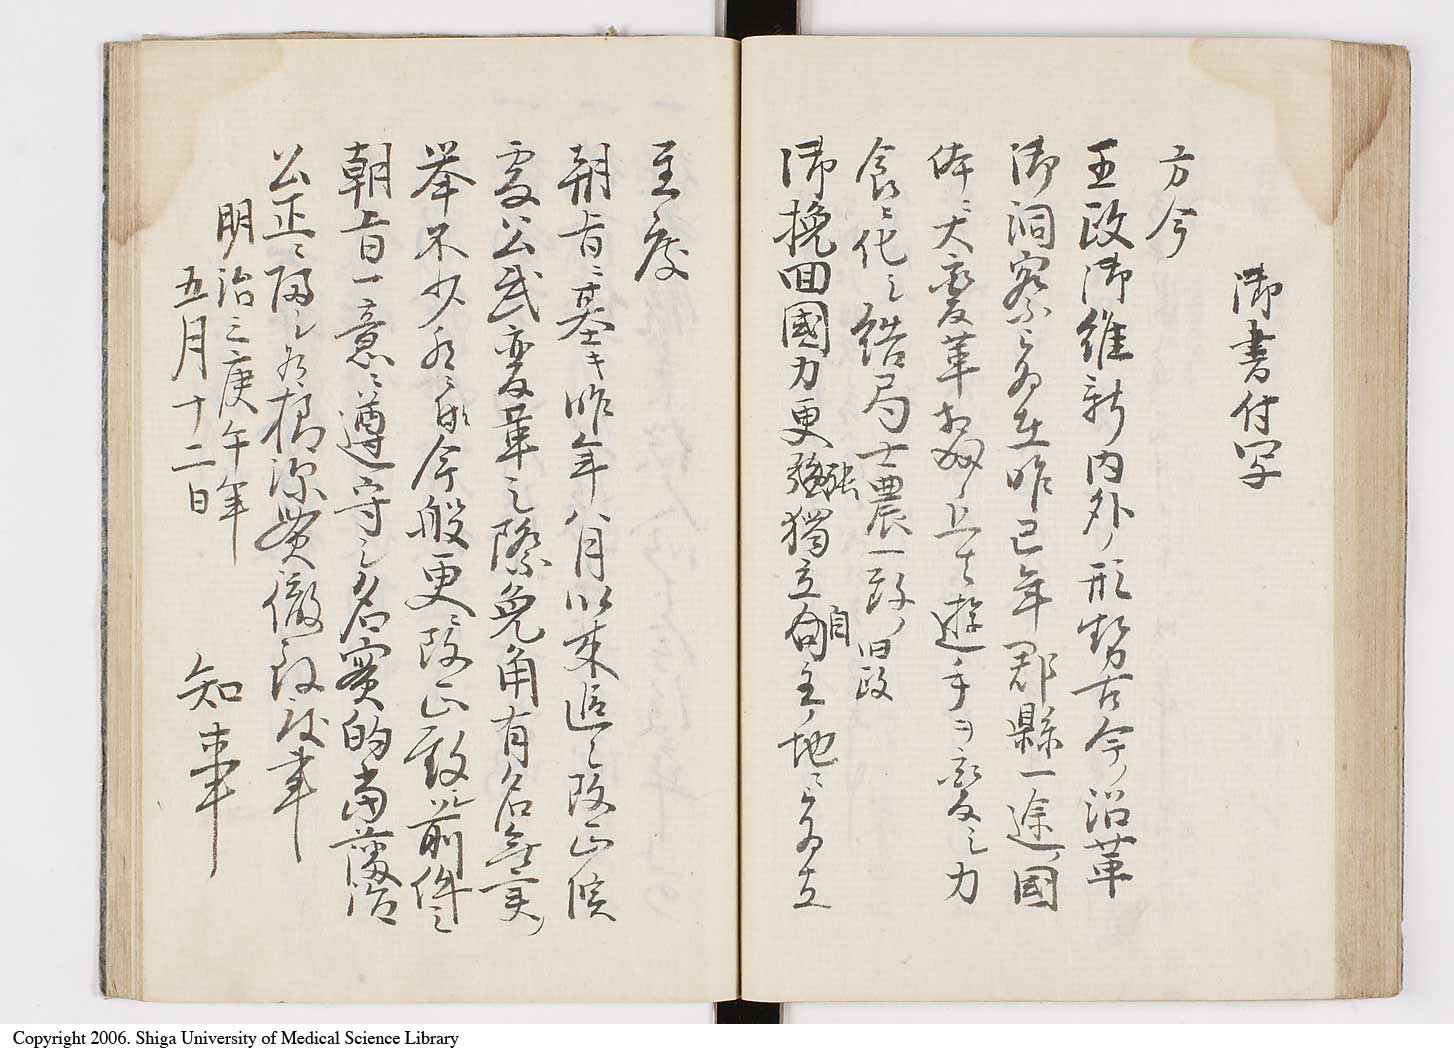 御書付写
方今
王政御維新内外ノ形勢古今ノ沿革
御洞察被為在昨巳年郡縣一途ノ國
体ニ大変革相成且士遊手ヲ変シ力
食ニ化シ結局士農一致ノ旧政
御挽回國力更張獨立自主ノ地ニ被為立
至度
朝旨ニ基キ昨年八月以来追々改正候
処公武変革之際兎角有名無実ノ
挙不少候ニ付今般更ニ改正致シ前件之
朝旨一意ニ遵守シ名實的当藩治
公正ニ帰シ候様深貫徹可致候事
明治三庚午年
五月十二日
知事
Copyright 2006. Shiga University of Medical Science Library